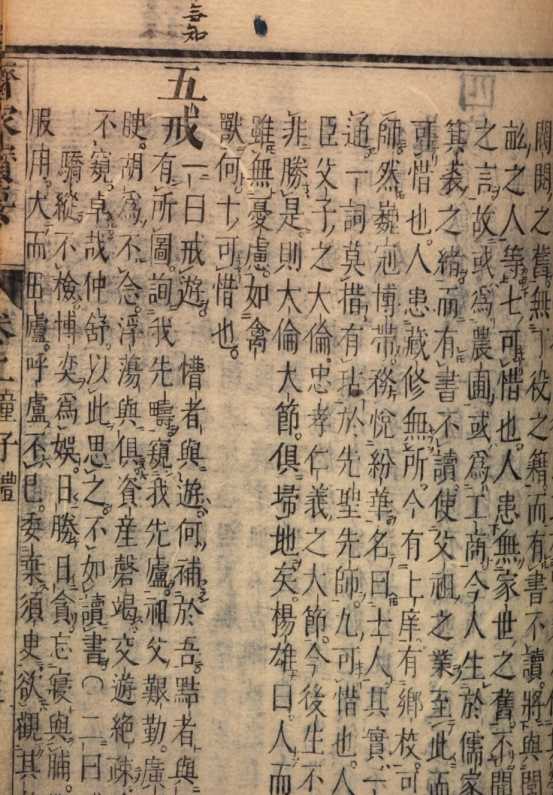 閥閱之舊無丁役之籍而有書不讀將與閭
之人等七可惜也人患無家世之舊不聞
之言故或爲農圃或爲工商今人生於儒家
箕裘之緒而有書不讀使父祖之業至此而
可惜也人患藏修無所今有上庠有鄉校可
師然巍冠博帶務悅紛華名曰士人其實一
通一詞莫措有玷於先聖先師九可惜也人
臣父子之大倫忠孝仁義之大節今後生不
非勝是則大倫大節俱埽地矣楊雄曰人而
雖無憂慮如禽
獸何十可惜也
五戒
一曰戒遊 懵者與遊何補於吾點者與
有所圖詢我先疇窺我先廬祖父艱勤廣
胡爲不念浮蕩與俱資産罄竭交遊絶疎
不窺卓哉仲舒以此思之不如讀書〇二曰
驕縱不檢博奕爲娛日勝日貪忘寢與餔
服用大而田廬呼盧不已委棄須臾欲觀其
齊家寶要
卷二童子禮